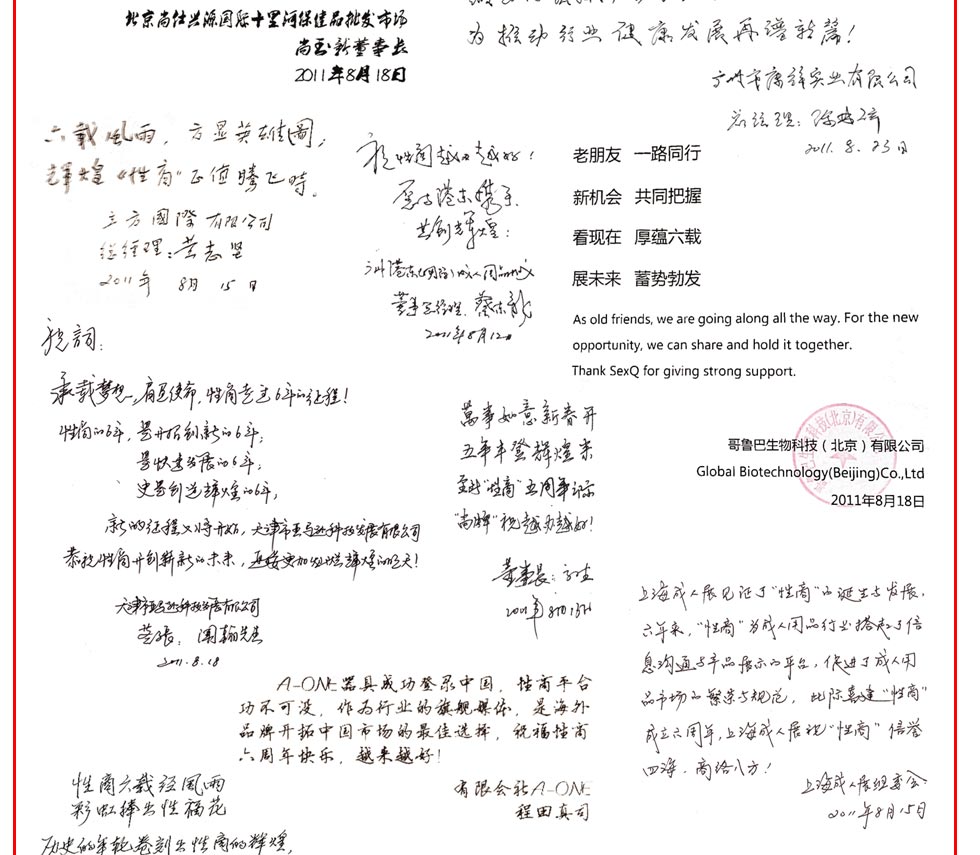 北京尚仕兴源国际十里河保健品批发市场
尚玉新董事长
2011年8月18日
为推动行业健康发展再谱新篇！
广州市康祥实业有限公司
总经理：
2011.8.23日
六载风雨，方显英雄图；
辉煌《性商》正值腾飞时。
立方國際有限公司
总经理：黄志坚
2011年 8月 15日
祝性商越办越好！
愿与港东携手
共创辉煌：
蔡东龙
2011年8月12日
老朋友 一路同行
新机会 共同把握
看现在 厚蕴六载
展未来 蓄势勃发
As old friends, we are going along all the way. For the new
opportunity, we can share and hold it together.
Thank SexQ for giving strong support.
哥鲁巴生物科技（北京）有限公司
Global Biotechnology(Beijing)Co.,Ltd
2011年8月18日
祝詞：
承载梦想，肩负使命，性商走过6年的征程！
性商的6年，是开拓创新的6年；
是快速发展的6年；
更是创造辉煌的6年，
新的征程又将开始，天津市亚马逊科技发展有限公司
恭祝性商开创新的未来，迎接更加灿烂辉煌的明天！
天津市亚马逊科技发展有限公司
2011.8.18
萬事如意新春开
五年丰登辉煌来
至此"性商"五周年之际
"尚牌"祝越办越好！
董事長：
2011年8月13日
A-ONE器具成功登录中国，性商平台
功不可没，作为行业的旗舰媒体，是海外
品牌开拓中国市场的最佳选择，祝福性商
六周年快乐，越来越好！
有限会社A-ONE
程田真司
上海成人展见证了"性商"的诞生与发展。
六年来，"性商"为成人用品行业搭起了信
息沟通与产品展示的平台，促进了成人用
品市场的繁荣与规范，此际喜逢"性商"
成立六周年，上海成人展祝"性商"信誉
四海，商络八方！
上海成人展组委会
2011年8月15日
性商六载经风雨
彩虹捧出性福花
历史的年轮卷刻出性商的辉煌，